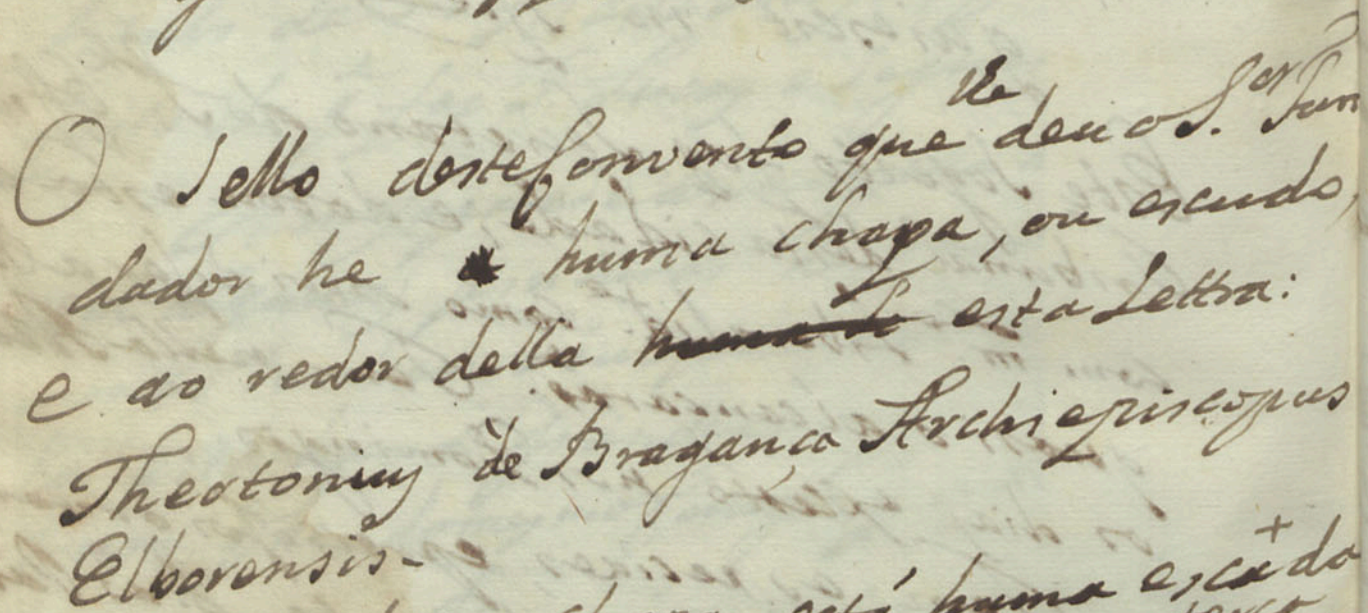 O Sello deste Convento que lhe deu o S.or Fun
dador he huma chapa, ou escudo,
e ao redor della huma le esta Lettra:
Theotonius de Bragança Archiepiscopus
Elborensis.
está huma escada